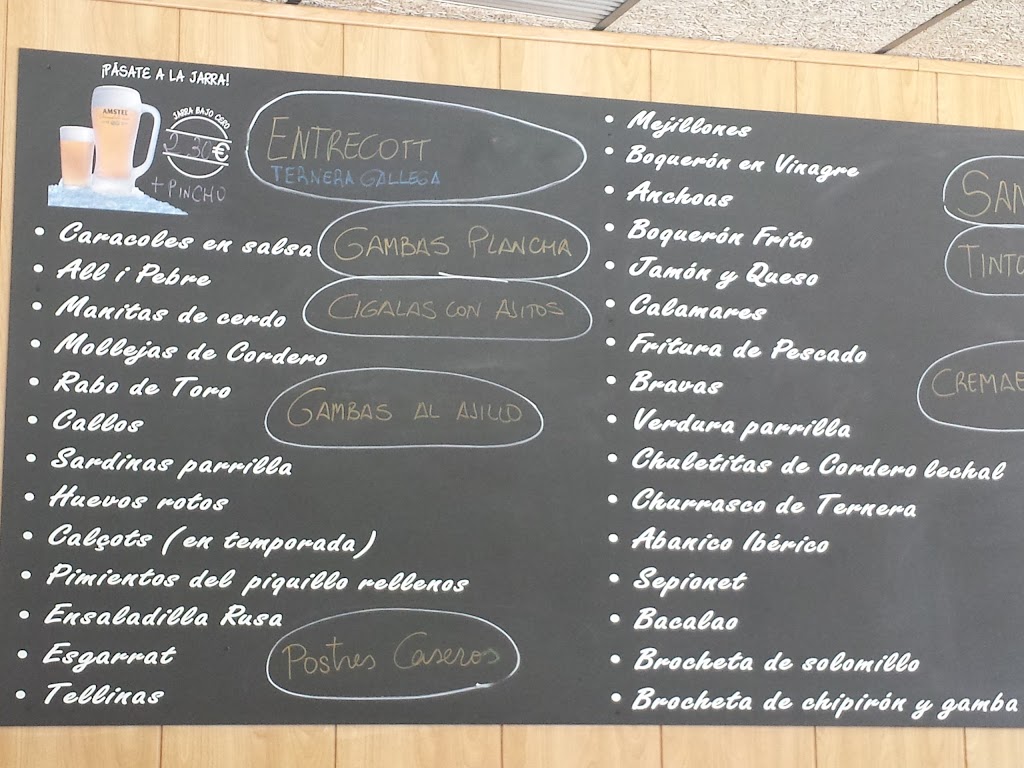 ¡PÁSATE A LA JARRA!
AMSTEL
JARRA BAJO CERO
€
+ PINCHO
ENTRECOTT
TERNERA GALLEGA
GAMBAS PLANCHA
CIGALAS CON AJITOS
GAMBAS AL AJILLO
• Caracoles en salsa
• All i Pebre
• Manitas de cerdo
• Mollejas de Cordero
• Rabo de Toro
• Callos
• Sardinas parrilla
• Huevos rotos
• Calçots (en temporada)
• Pimientos del piquillo rellenos
• Ensaladilla Rusa
• Esgarrat
• Tellinas
Postres Caseros
• Mejillones
• Boquerón en Vinagre
• Anchoas
• Boquerón Frito
• Jamón y Queso
• Calamares
• Fritura de Pescado
• Bravas
• Verdura parrilla
• Chuletitas de Cordero lechal
• Churrasco de Ternera
• Abanico Ibérico
• Sepionet
• Bacalao
• Brocheta de solomillo
• Brocheta de chipirón y gamba
TINTO